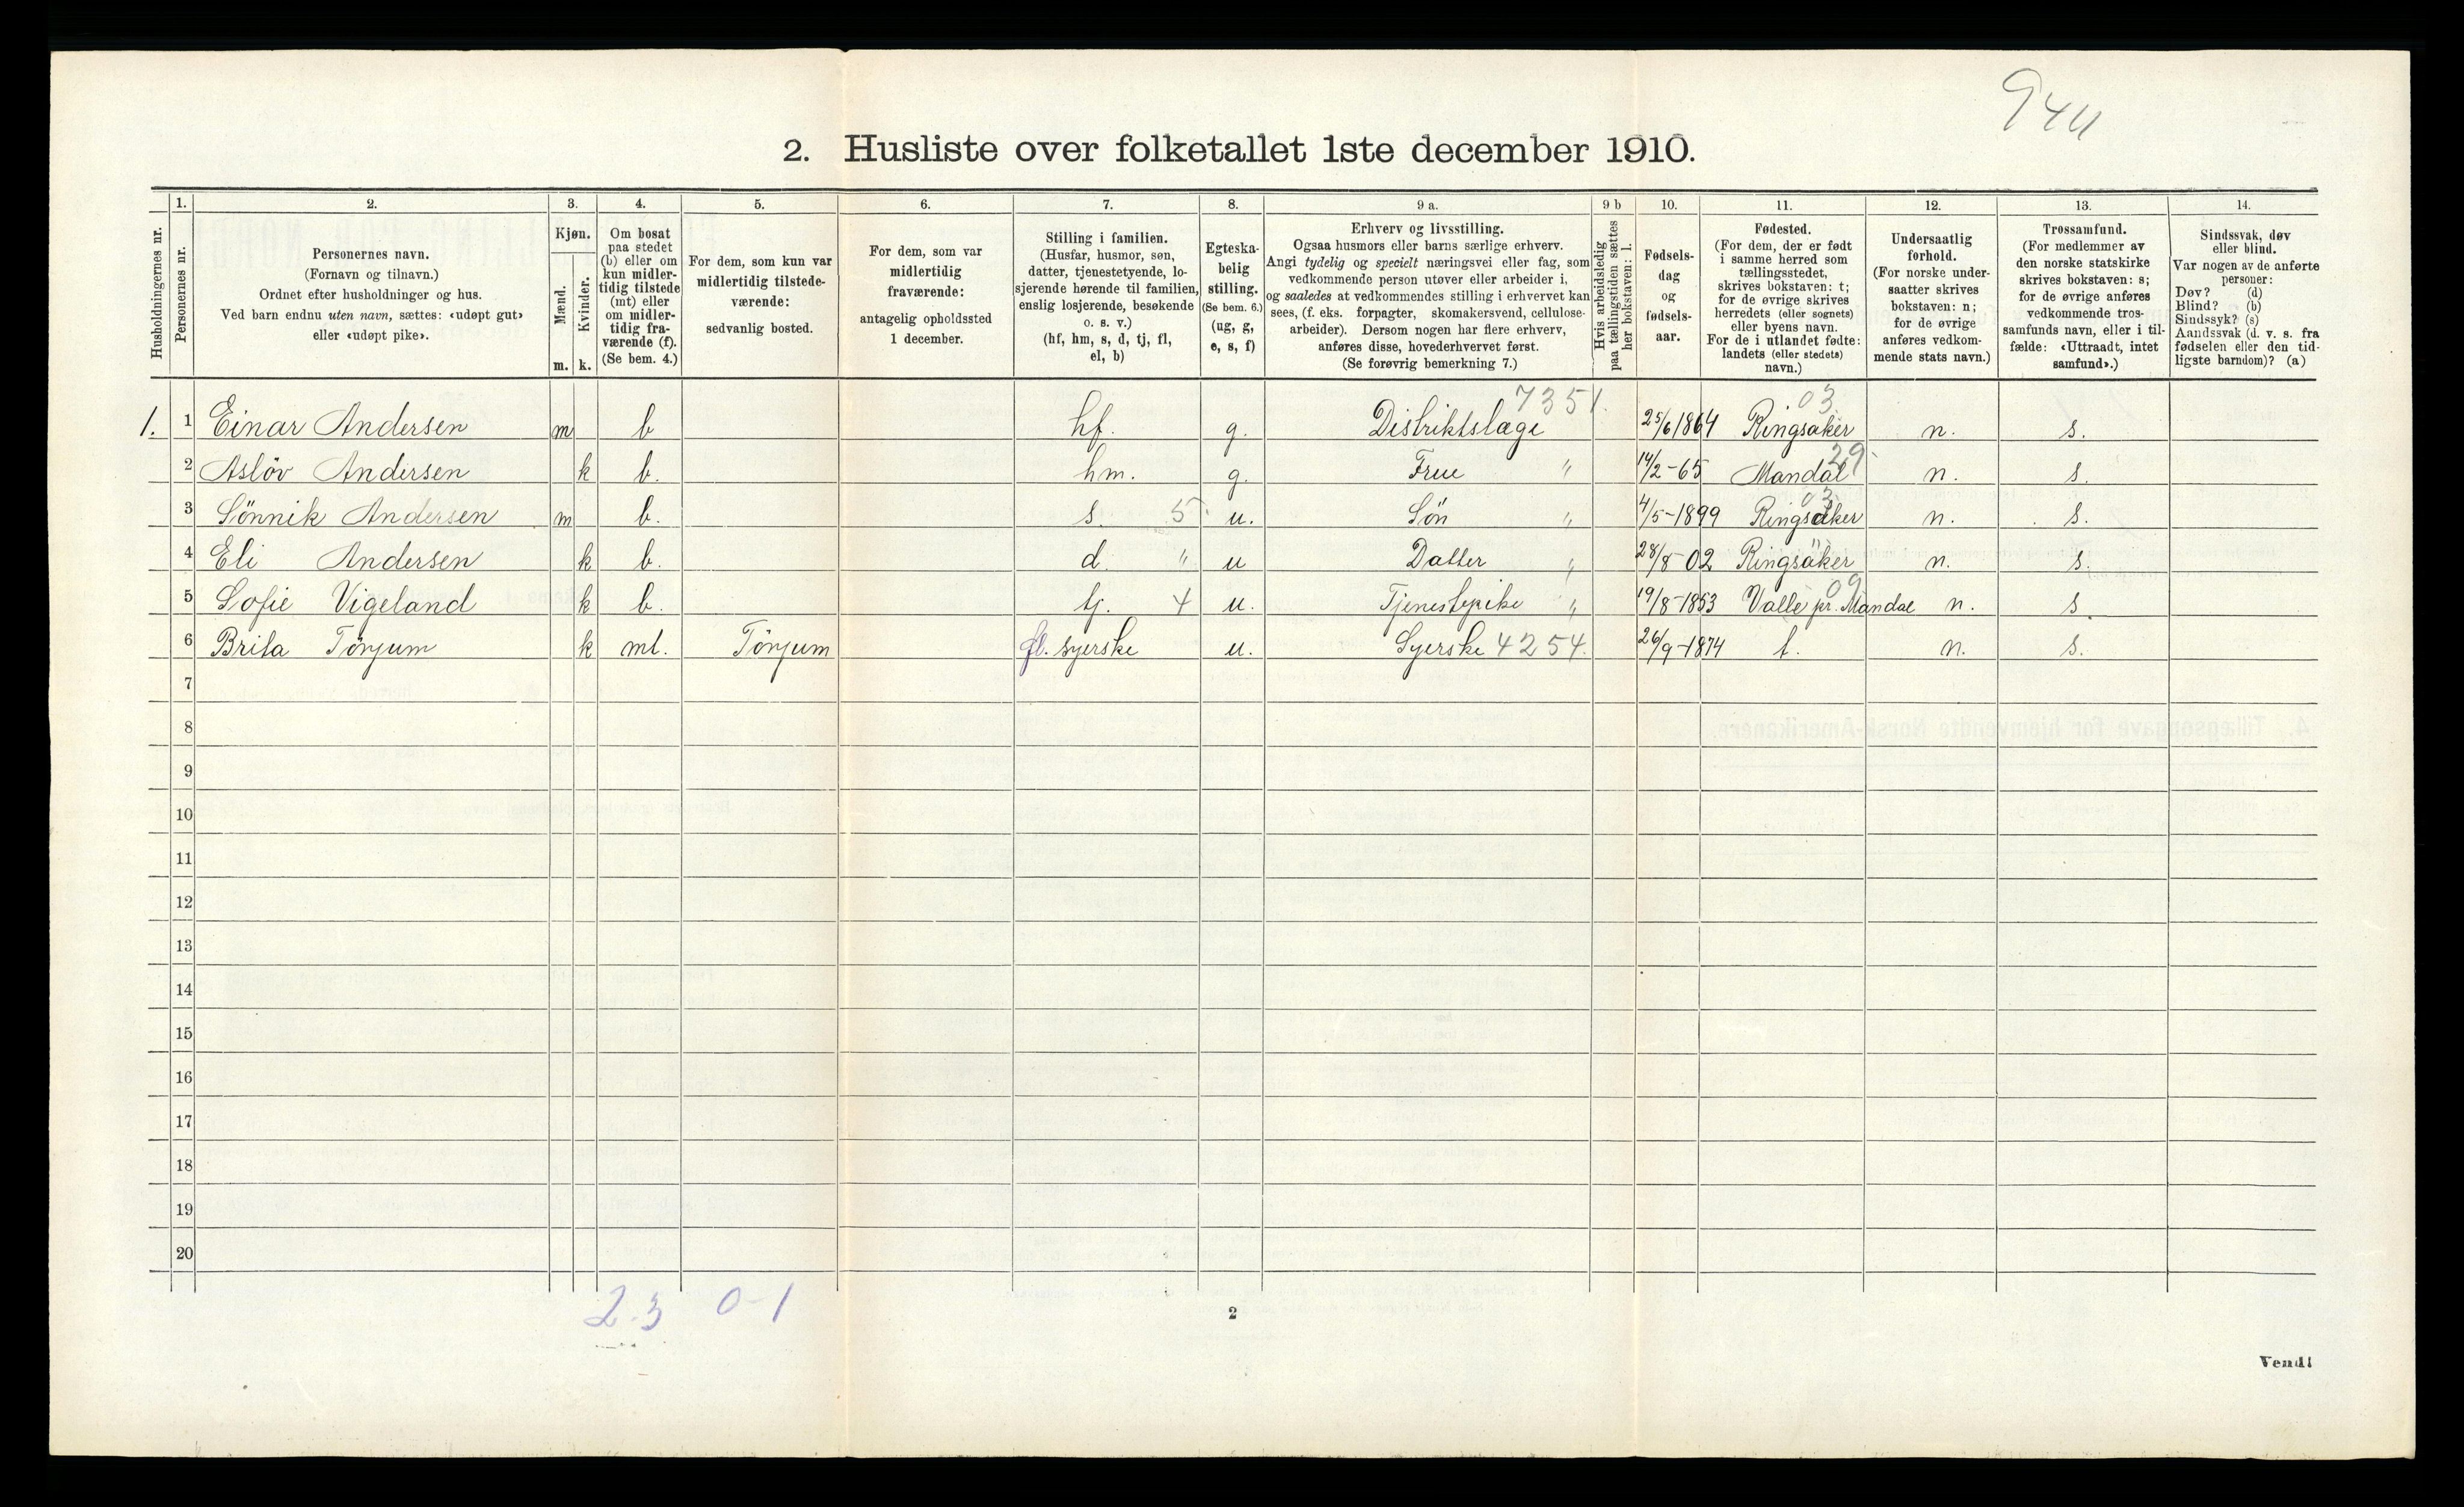 944
2. Husliste over folketallet 1ste december 1910.
Husholdningernes nr.
1.
Personernes nr.
2.
Personernes navn.
(Fornavn og tilnavn.)
Ordnet efter husholdninger og hus.
Ved barn endnu uten navn, sættes: «udøpt gut»
eller «udøpt pike».
3.
Kjøn.
Mænd.
Kvinder.
m. k.
4.
Om bosat
paa stedet
(b) eller om
kun midler-
tidig tilstede
(mt) eller
om midler-
tidig fra-
værende (f).
(Se bem. 4.)
5.
For dem, som kun var
midlertidig tilstede-
værende:
sedvanlig bosted.
6.
For dem, som var
midlertidig
fraværende:
antagelig opholdssted
1 december.
7.
Stilling i familien.
(Husfar, husmor, søn,
datter, tjenestetyende, lo-
sjerende hørende til familien,
enslig losjerende, besøkende
o. s. v.)
(hf, hm, s, d, tj, fl,
el, b)
8.
Egteska-
belig
stilling.
(Se bem. 6.)
(ug, g,
e, s, f)
9 a.
Erhverv og livsstilling.
Ogsaa husmors eller barns særlige erhverv.
Angi tydelig og specielt næringsvei eller fag, som
vedkommende person utøver eller arbeider i,
og saaledes at vedkommendes stilling i erhvervet kan
sees, (f. eks. forpagter, skomakersvend, cellulose-
arbeider). Dersom nogen har flere erhverv,
anføres disse, hovederhvervet først.
(Se forøvrig bemerkning 7.)
9 b
Hvis arbeidsledig
paa tællingstiden sættes
her bokstaven: l.
10.
Fødsels-
dag
og
fødsels-
aar.
11.
Fødested.
(For dem, der er født
i samme herred som
tællingsstedet,
skrives bokstaven: t;
for de øvrige skrives
herredets (eller sognets)
eller byens navn.
For de i utlandet fødte:
landets (eller stedets)
navn.)
12.
Undersaatlig
forhold.
(For norske under-
saatter skrives
bokstaven: n;
for de øvrige
anføres vedkom-
mende stats navn.)
13.
Trossamfund.
(For medlemmer av
den norske statskirke
skrives bokstaven: s;
for de øvrige anføres
vedkommende tros-
samfunds navn, eller i til-
fælde: «Uttraadt, intet
samfund».)
14.
Sindssvak, døv
eller blind.
Var nogen av de anførte
personer:
Døv? (d)
Blind? (b)
Sindssyk? (s)
Aandssvak (d. v. s. fra
fødselen eller den tid-
ligste barndom)? (a)
7351. 03
1. 1 Einar Andersen m b hf. g. Distriktslæge 25/6 1864 Ringsaker n. s.
2 Aslöv Andersen k b. hm. g. Frue " 14/2-65 Mandal 29 n. s.
3 Sönnik Andersen m b. s. 5 u. Sön " 4/5-1899 Ringsaker 03 n. s.
4 Eli Andersen k b. d. " u Datter " 28/8 02 Ringsaker " n. s.
5 Sofie Vigeland k b. tj. 4 u. Tjenestepike " 19/8-1853 Valle pr. Mandal 09 n. s
6 Brita Tönjum k mt. Tönjum fl. syerske u. Syerske 4254. 26/9-1874 t. n. s.
7
8
9
10
11
12
13
14
15
16
17
18
19
20
2-3 0-1
2
Vend!